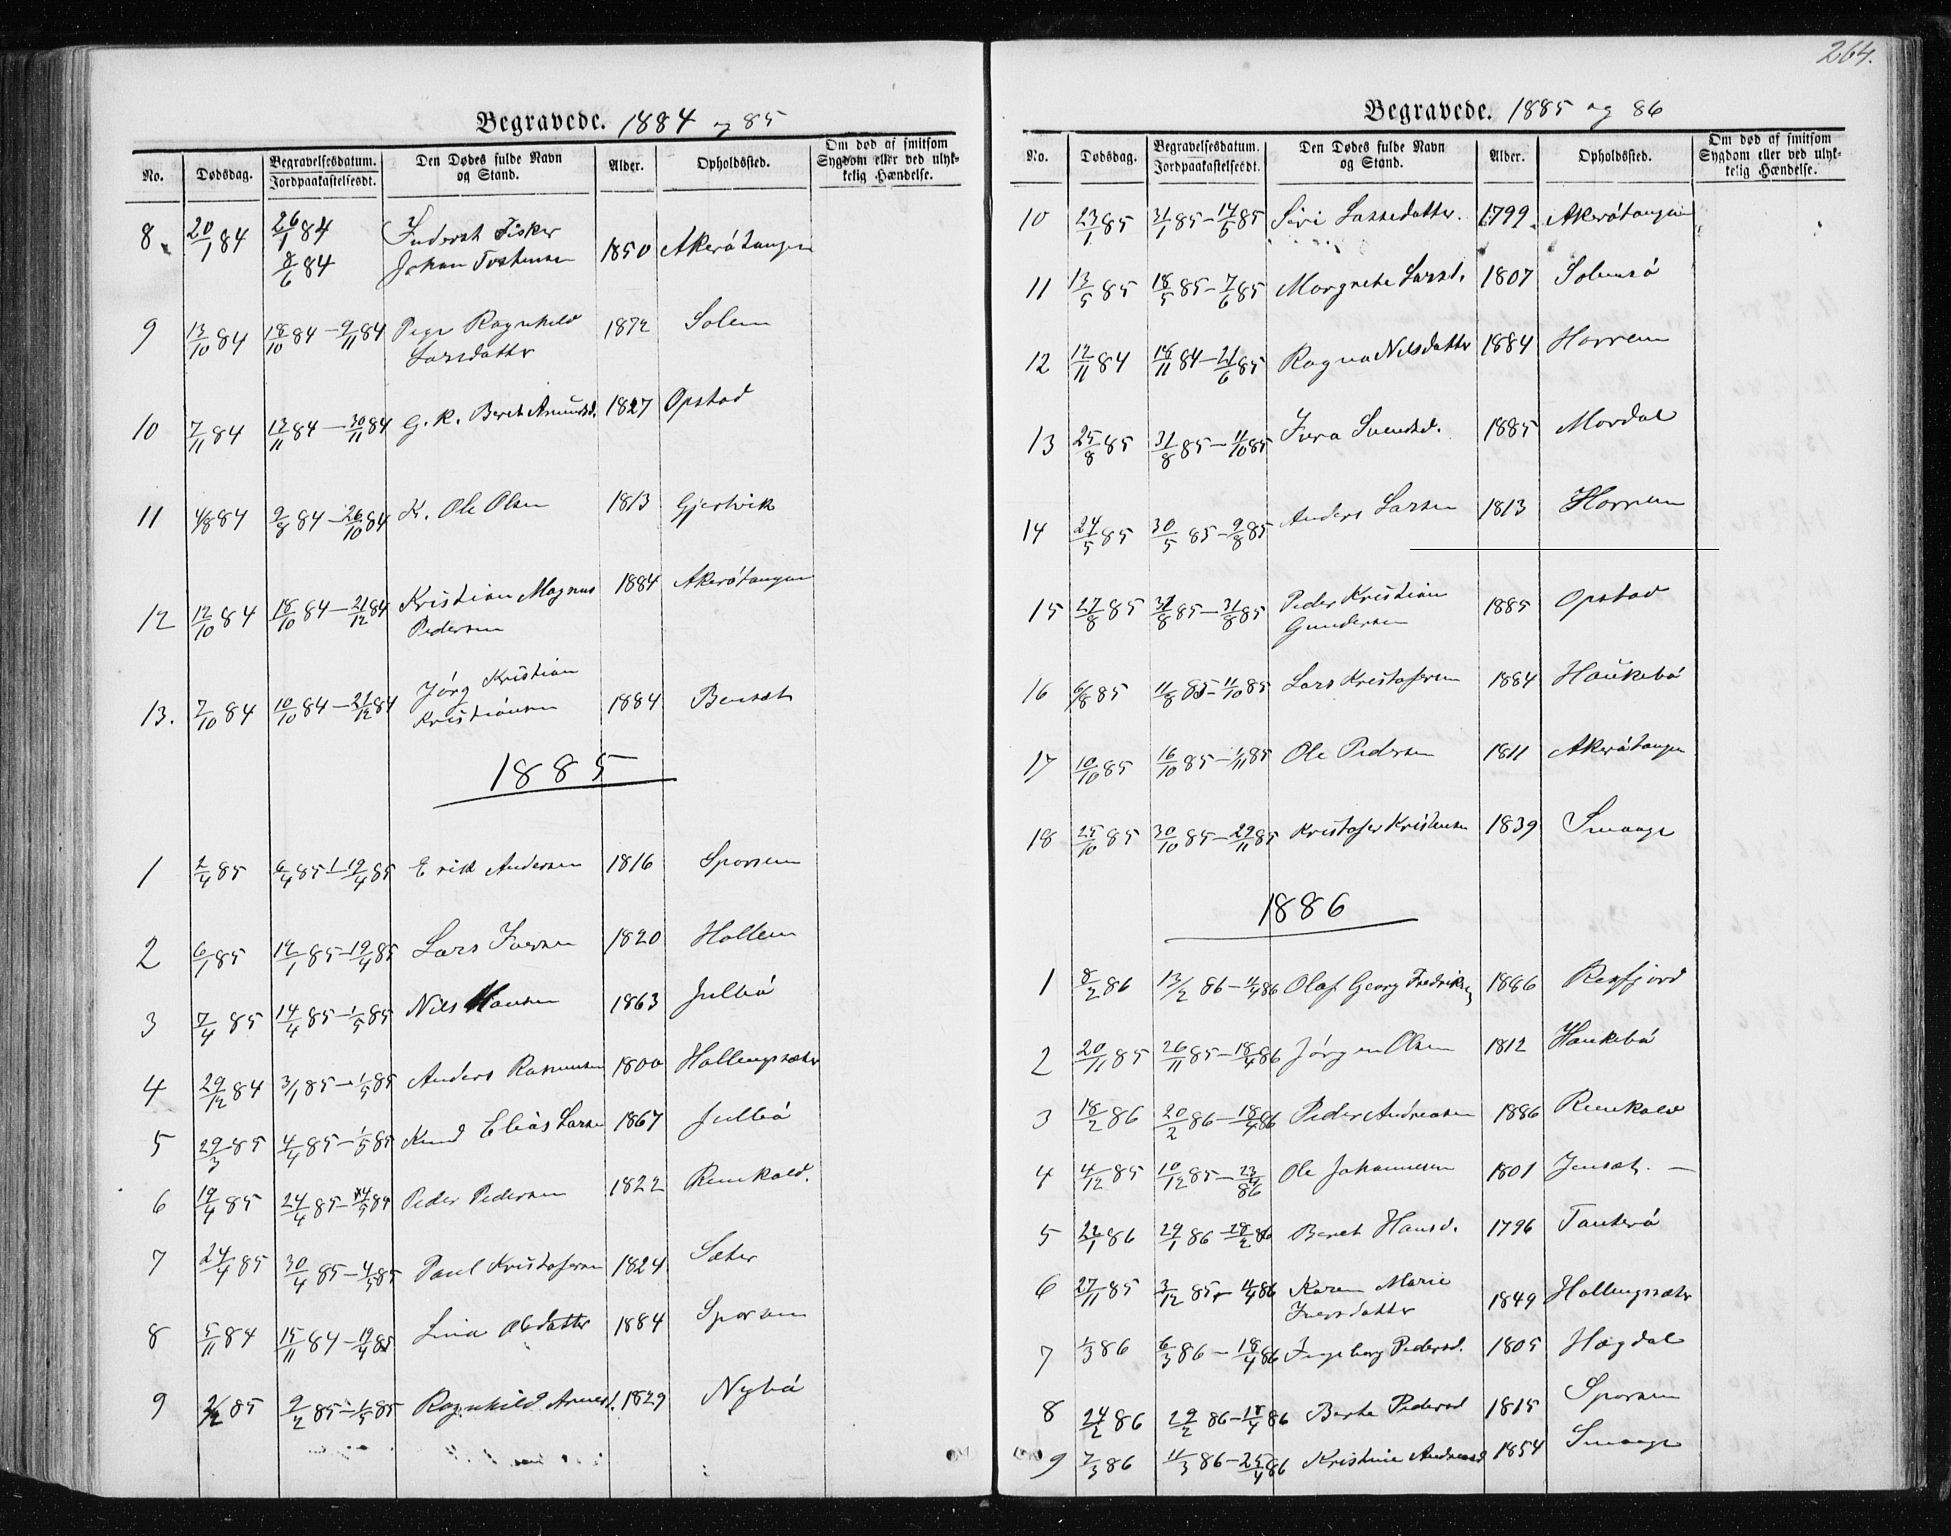 264.
Begravede. 1884 og 85
No. Dødsdag. Begravelsesdatum. Jordpaakastelsesdt. Den Dødes fulde Navn og Stand. Alder. Opholdssted. Om død af smitsom Sygdom eller ved ulykkelig Hændelse.
8. 20/1 84 26/1 84 Inderst Fisker
8/6 84 Johan Tostensen 1850 Akerötangen
9 13/10 84 18/10 84 – 9/11 84 Pige Ragnhild 1872 Solem
Larsdatter
10 7/11 84 13/11 84 – 30/11 84 G. K. Beret Amundsd. 1827 Opstad
11 4/8 84 9/8 84 – 26/10 84 K. Ole Olsen 1813 Gjertvik
12 12/10 84 18/10 84 – 21/12 84 Kristian Magnus 1884 Akerötangen
Pedersen
13. 7/10 84 10/10 84 – 21/12 84 Jörg Kristian
Kristiansen 1884 Bensæt
1885
1 2/4 85 6/4 85 – 19/4 85 Erik Andersen 1816 Sporsem
2 6/1 85 12/1 85 – 19/4 85 Lars Iversen 1820 Hollem
3 7/4 85 14/4 85 – 1/5 85 Nils Hansen 1863 Julbö
4 29/12 84 3/1 85 – 1/5 85 Anders Rasmussen 1800 Hollingsæter
5 29/3 85 4/4 85 – 1/5 85 Knud Elias Larsen 1867 Julbö
6 19/4 85 24/4 85 – 14/5 85 Peder Pedersen 1822 Renskald.
7 24/4 85 30/4 85 – 4/5 85 Paul Kristofersen 1824 Sæter
8 5/11 84 15/11 84 – 19/4 85 Lina Olsdatter 1884 Sporsem
9 2/2 85 9/2 85 – 1/5 85 Ragnhild Arnesd. 1829 Nybö
Begravede. 1885 og 86
No. Dødsdag. Begravelsesdatum. Jordpaakastelsesdt. Den Dødes fulde Navn og Stand. Alder. Opholdssted. Om død af smitsom Sygdom eller ved ulykkelig Hændelse.
10 23/1 85 31/1 85 – 14/5 85 Siri Lassedatter. 1799. Akerötangen
11 13/5 85 18/5 85 – 7/6 85 Margrethe Larsd. 1807 Solemsö
12 12/11 84 18/11 84 – 21/6 85 Ragna Nilsdatter 1884 Horrem
13 25/8 85 31/8 85 – 11/10 85 Ivera Svendsd. 1885 Mordal
14 24/5 85 30/5 85 – 9/8 85 Anders Larsen 1813 Horrem
15 27/8 85 31/8 85 – 31/8 85 Peder Kristian 1885 Opstad
Gundersen
16 6/8 85 11/8 85 – 11/10 85 Lars Kristofersen 1884 Haukebö
17 10/10 85 16/10 85 – 1/11 85 Ole Pedersen 1811 Akerötangen
18 25/10 85 30/10 85 – 29/11 85 Kristofer Kristensen 1839 Smaage
1886
1 8/2 86 13/2 86 – 4/4 86 Olaf Georg Fredriksen 1886 Rexfjord
2 20/11 85 26/11 85 – 18/4 86 Jörgen Olsen 1812 Haukebö
3 18/2 86 20/2 86 – 18/4 86 Peder Andreasen 1886 Renskald
4 4/12 85 10/12 85 – 23/4 86 Ole Johannesen 1801 Jensæt. –
5 22/1 86 29/1 86 – 28/2 86 Beret Hansd. 1796 Tauterö
6 27/11 85 3/12 85 – 4/4 86 Karen Marie
Iversdatter 1849 Hollingsæter
7 1/3 86 6/3 86 – 18/4 86 Ingeborg Pedersd. 1805 Hægdal
8 24/2 86 29/2 86 – 18/4 86 Berthe Pedersd 1815 Sporsem
9 7/3 86 11/3 86 – 25/4 86 Kristine Andreasd 1854 Smaage